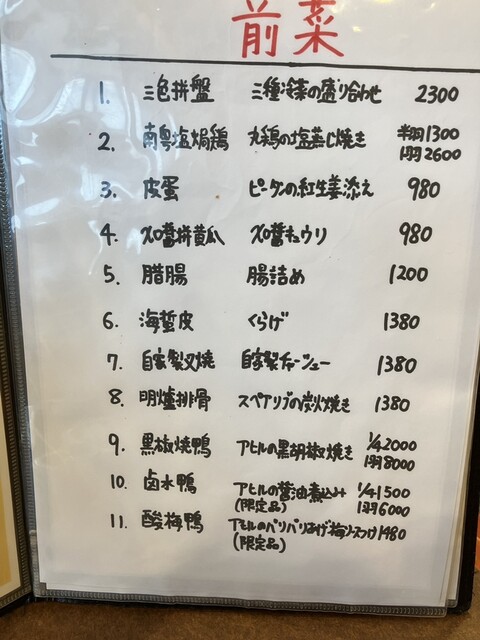 前菜
1. 三色拼盤 三種冷菜の盛り合わせ 2300
2. 南粤塩焗鶏 丸鶏の塩蒸し焼き 半羽1300
1羽2600
3. 皮蛋 ピータンの紅生姜添え 980
4. XO醬拼黄瓜 XO醬キュウリ 980
5. 腊腸 腸詰め 1200
6. 海蜇皮 くらげ 1380
7. 自家製叉焼 自家製チャーシュー 1380
8. 明爐排骨 スペアリブの炭火焼き 1380
9. 黒椒焼鴨 アヒルの黒胡椒焼き 1/4 2000
1羽8000
10. 卤水鴨 アヒルの醤油煮込み 1/4 1500
(限定品) 1羽6000
11. 酸梅鴨 アヒルのパリパリあげ梅ソースつけ 1480
(限定品)